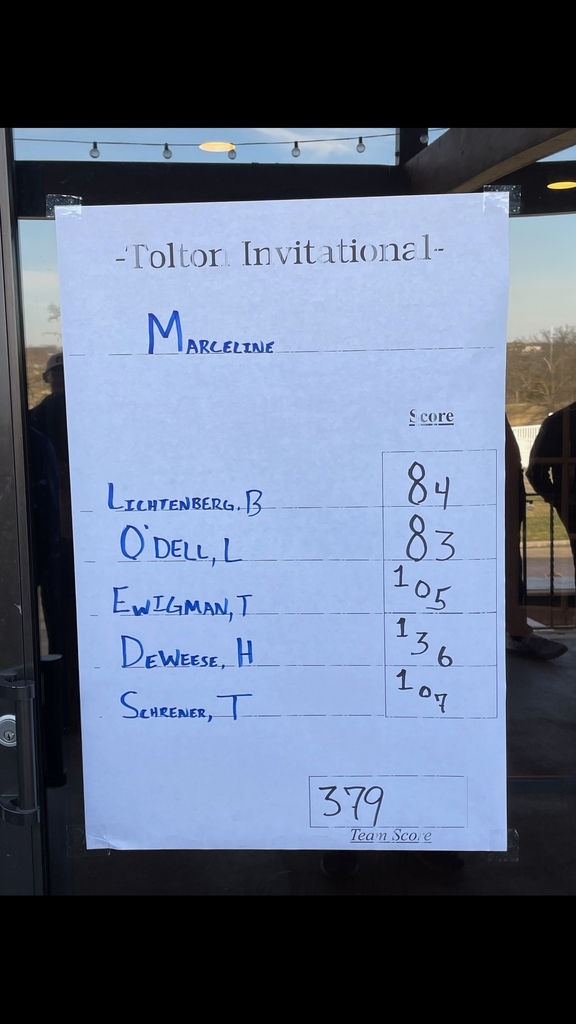 -Tolton Invitational-
MARCELINE
Score
LICHTENBERG, B 84
O'DELL, L 83
EWIGMAN, T 105
DEWEESE, H 136
SCHRENER, T 107
379
Team Score